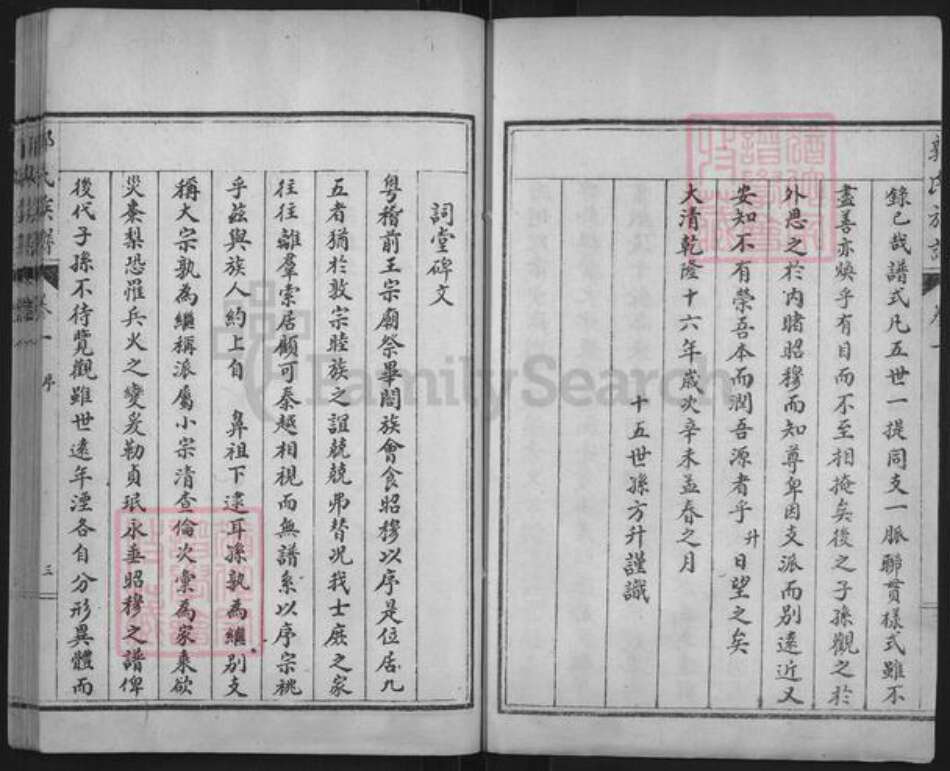 錄已哉譜式凡五世一提同支一脈聯貫樣式雖不
盡善亦煥乎有目而不至相掩矣後之子孫觀之於
外思之於內睹昭穆而知尊卑因支派而別遠近又
安知不有榮吾本而潤吾源者乎升日望之矣
大清乾隆十六年歲次辛未孟春之月
十五世孫方升謹識
氏族譜 卷一 序 三
詞堂碑文
粵稽前王宗廟祭畢闔族會食昭穆以序是位居九
五者猶於敦宗睦族之誼兢兢弗替况我士庶之家
往往離羣索居顧可秦越相視而無譜系以序宗祧
乎茲與族人約上自 鼻祖下逮耳孫孰為繼別支
稱大宗孰為繼稱派屬小宗清查倫次彙為家乘欲
災棗梨恐罹兵火之變爰勒貞珉永垂昭穆之譜俾
後代子孫不待覽觀雖世遠年湮各自分形異體而
FamilySearch